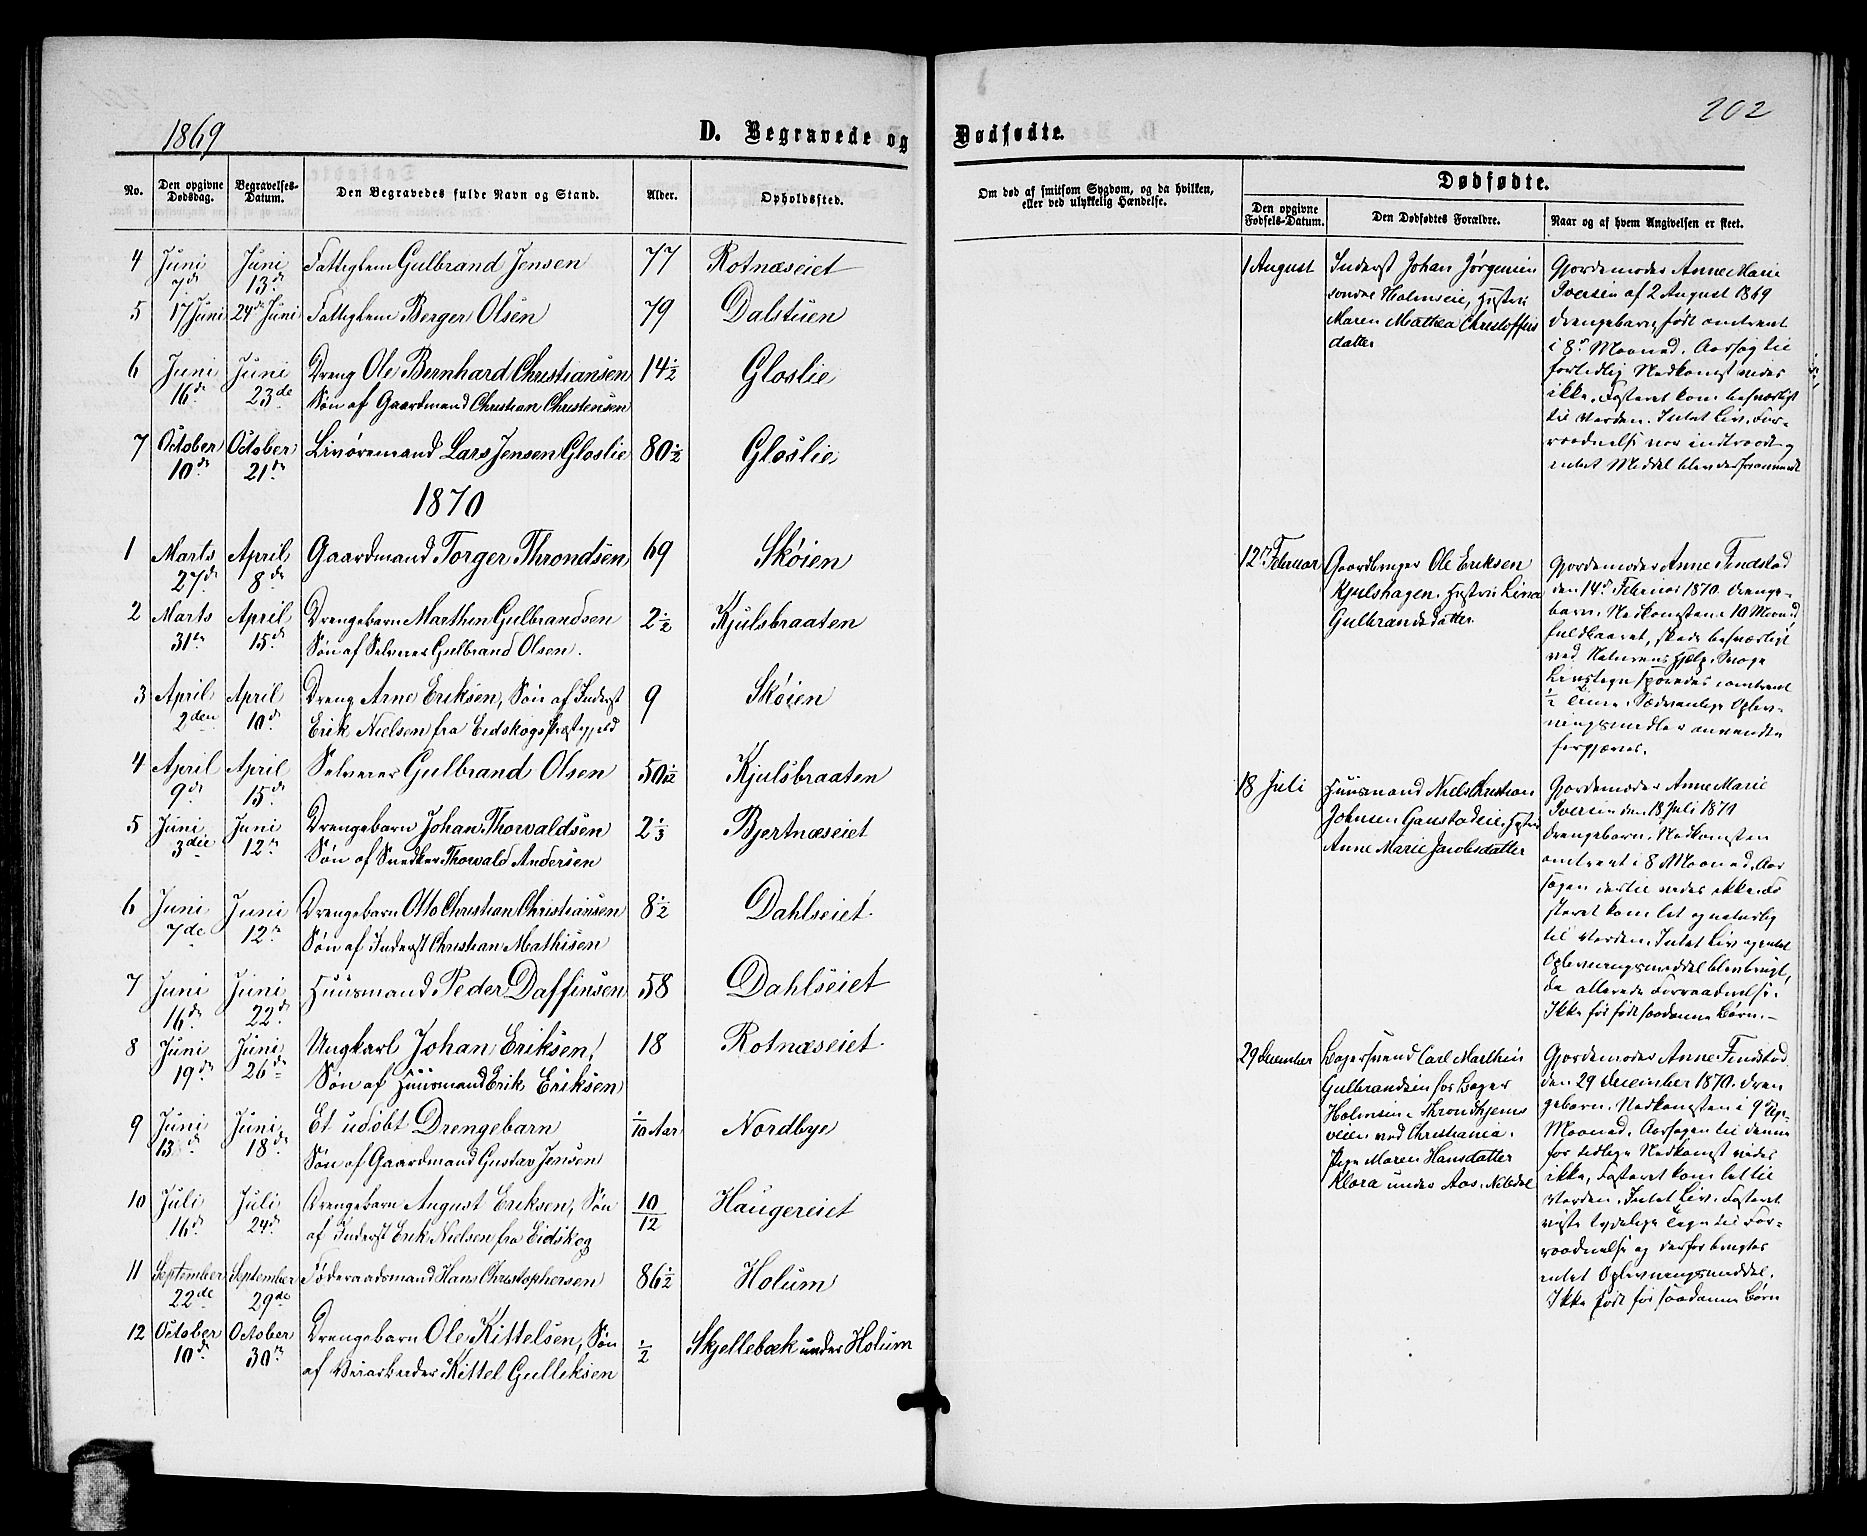 202
1869
D. Begravede og Dødfødte.
No.
Den opgivne Dødsdag.
Begravelses-Datum.
Den Begravedes fulde Navn og Stand.
Alder.
Opholdssted.
Om død af smitsom Sygdom, og da hvilken, eller ved ulykkelig Hændelse.
Dødfødte.
Den opgivne Fødsels-Datum.
Den Dødfødtes Forældre.
Naar og af hvem Angivelsen er skeet.
4 Juni 7de Juni 13de Fattiglem Gulbrand Jensen 77 Rotnæseiet
5 17 Juni 24de Juni Fattiglem Berger Olsen 79 Dalstuen
6 Juni 16de Juni 23de Dreng Ole Bernhard Christiansen 14½ Gloslie
Søn af Gaardmand Christian Christensen
7 October 10de October 21de Livøremand Lars Jensen Gloslie 80½ Gloslie
1870
1 Marts 27de April 8de Gaardmand Torger Throndsen 69 Skøien
2 Marts 31te April 15de Drengebarn Marthin Gulbrandsen 2½ Kjulsbraaten
Søn af Selveier Gulbrand Olsen.
3 April 2den April 10de Dreng Arne Eriksen, Søn af Inderst 9 Skøien
Erik Nielsen fra Eidskogs Præstegjeld
4 April 9de April 15de Selveier Gulbrand Olsen 50½ Kjulsbraaten
5 Juni 3die Juni 12te Drengebarn Johan Thorvaldsen 2⅓ Bjertnæseiet
Søn af Snedker Thorvald Andersen
6 Juni 7de Juni 12te Drengebarn Otto Christian Christiansen 8½ Dahlseiet
Søn af Inderst Christian Mathisen
7 Juni 16de Juni 22de Huusmand Peder Daffinsen 58 Dahlseiet
8 Juni 19de Juni 26de Ungkarl Johan Eriksen, 18 Rotnæseiet
Søn af Huusmand Erik Eriksen
9 Juni 13de Juni 18de Et udøbt Drengebarn 1/10 Aar Nordbye
Søn af Gaardmand Gustav Jensen
10 Juli 16de Juli 24de Drengebarn August Eriksen, Søn 10/12 Haugereiet
af Inderst Erik Nielsen fra Eidskog
11 September 22de September 29de Føderaadsmand Hans Christophersen 86½ Holum
12 October 10de October 30te Drengebarn Ole Kittelsen, Søn ½ Skjellebæk under Holum
af Veiarbeider Kittel Gulliksen
1 August
Inderst Johan Jørgensen
Holmseie, Hustru
Maren Mathea Christoffers
datter
Gjordemoder Anne Marie
Iversen af 2 August 1869
Drengebarn, født omtrent
i 8de Maaned. Aarsag til
fortidlig Nedkomst vides
ikke. Fosteret kom besværligt
til Verden. Intet Liv. For-
raadnelse var indtraadt og
intet Middel blev derfor anvendt
12te Februar
Gaardbruger Ole Eriksen
Kjulshagen. Hustru Lina
Gulbrandsdatter
Gjordemoder Anne Findstad
den 14de Februar 1870. Drenge-
barn. Nedkomsten i 10 Maaned,
fuldbaaret, skede besværligt
ved Naturens Hjælp. Svage
Livstegn sporedes omtrent
½ Time. Sædvanlige Opliv-
ningsmidler anvendte
forgjæves.
18 Juli
Huusmand Niels Kristian
Johnsen Ganstadeie, Hustru
Anne Marie Jacobsdatter
Gjordemoder Anne Marie
Iversen den 18 Juli 1870
Drengebarn. Nedkomsten
omtrent i 8 Maaned. Aar
sagen dertil vides ikke. Fo
steret kom let og naturlig
til Verden. Intet Liv og intet
Oplivningsmiddel blev brugt,
da allerede Forraadnelse.
Ikke før født saadanne Børn.
29 December
Bagersvend Carl Marthin
Gulbrandsen hos Bager
Holmsen i Throndhjems
veien ved Christiania.
Pige Maren Hansdatter
Klora under Aas, Nitedal
Gjordemoder Anne Findstad
den 29 December 1870. Dren
gebarn. Nedkomsten i 9de
Maaned. Aarsagen til denne
for tidlige Nedkomst vides
ikke, Fosteret kom let til
Verden. Intet Liv. Fosteret
viste tydelige Tegn til For-
raadnelse og derfor brugtes
intet Oplivningsmiddel.
Ikke født før saadanne Børn